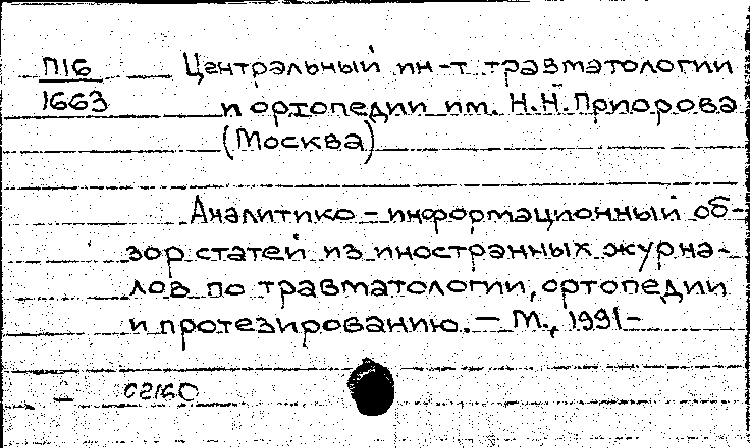 П16
1663
Центральный ин-т травматологии
и ортопедии им. Н.Н. Приорова
(Москва)
Аналитико-информационный об-
зор статей из иностранных журна-
лов по травматологии, ортопедии
и протезированию. — М., 1991-
— 02160